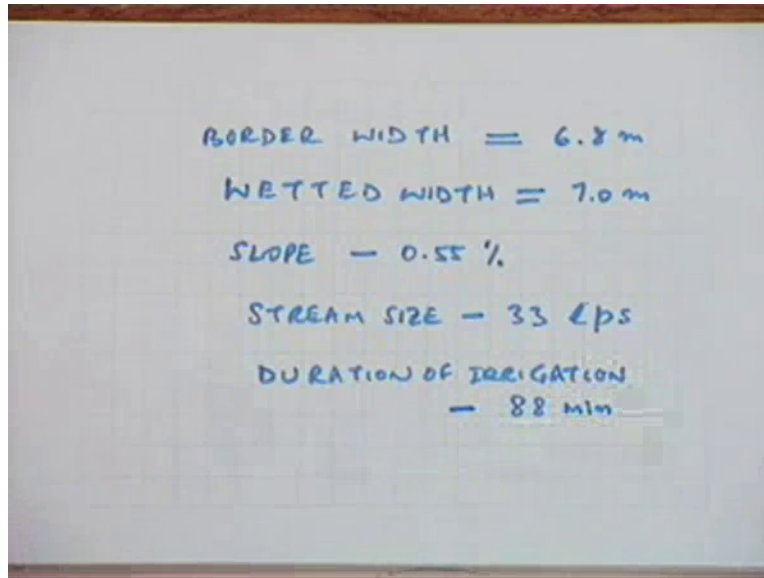 BORDER WIDTH = 6.8 m
WETTED WIDTH = 7.0 m
SLOPE - 0.55 %
STREAM SIZE - 33 lps
DURATION OF IRRIGATION
- 88 min